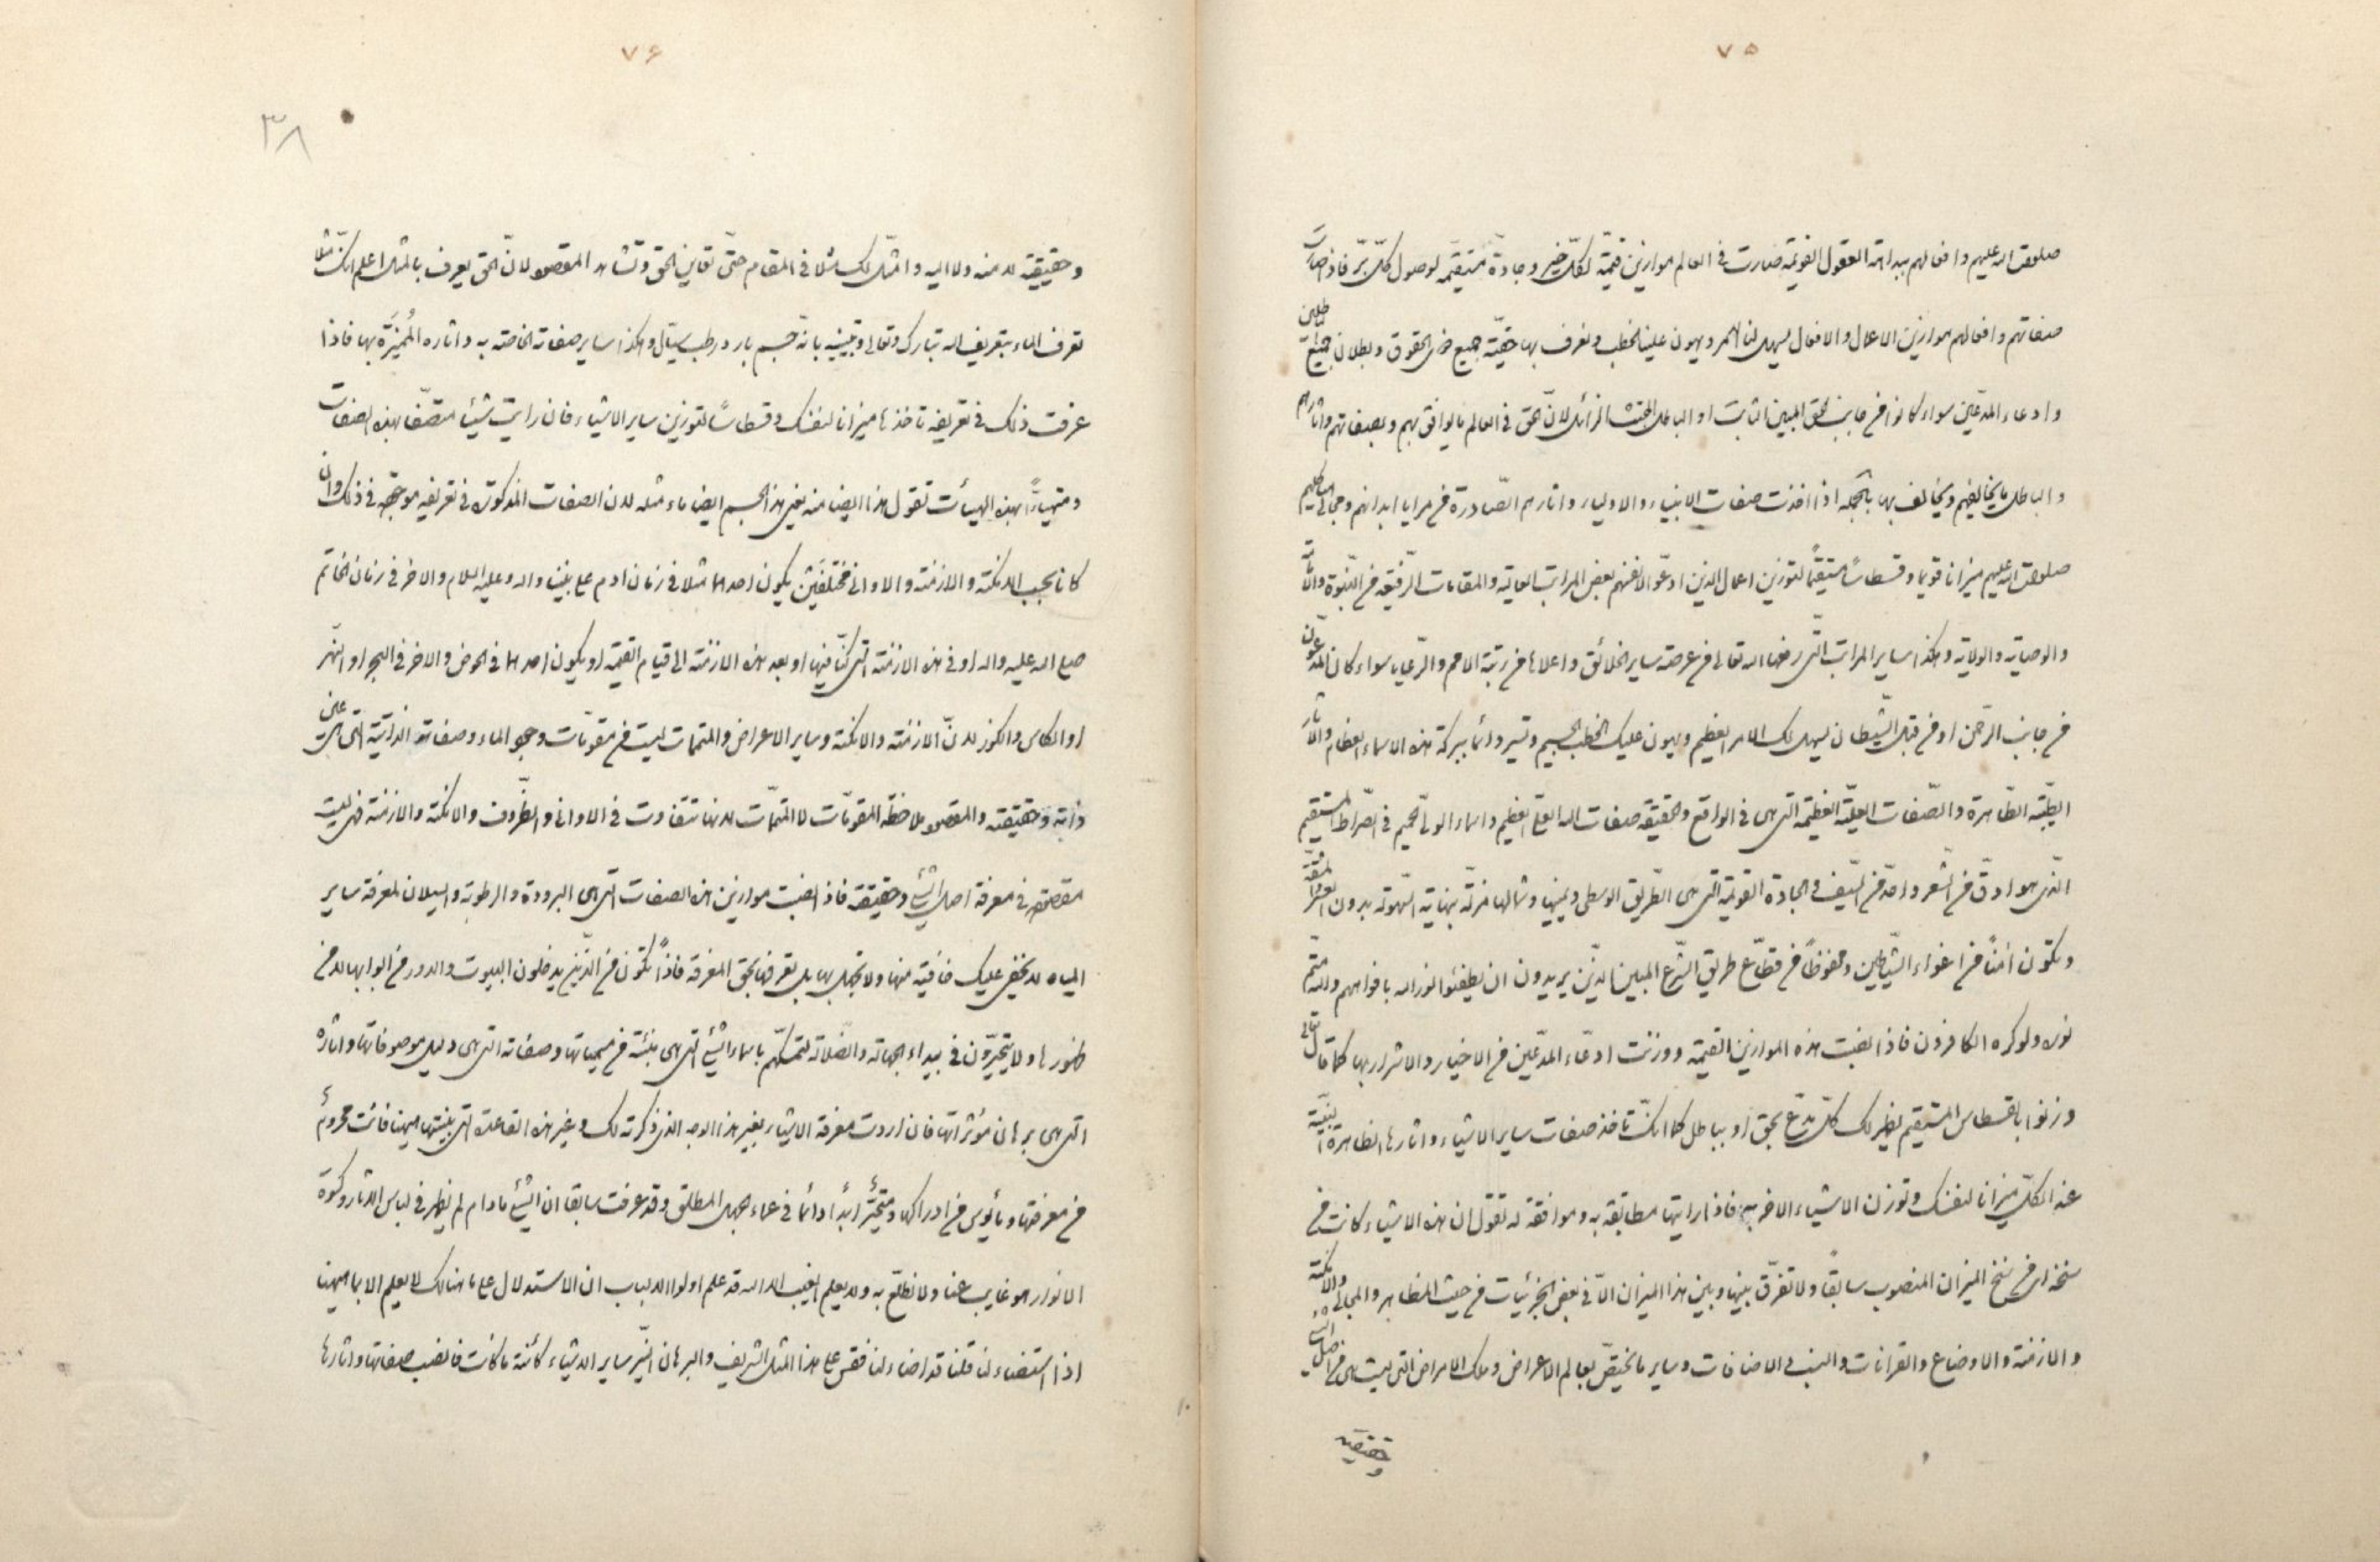 ٧٥
صلوات الله عليهم وافعالهم ببداهة العقول القويمة صارت في العالم موازين قيّمة لكلّ خير وجادة مستقيمة لوصول كلّ برّ فاذا صارت
صفاتهم وافعالهم موازين الاعمال والافعال ليسهل لنا الامر ويهون علينا الخطب ونعرف بها حقيّة جميع ذوي الحقوق وبطلان جميع المبطلين
وادعاء المدّعين سواء كانوا من جانب الحق المبين الثابت او الباطل المجتث الزائل لانّ الحق في العالم ما يوافق بهم وبصفاتهم وآثارهم
والباطل ما يخالفهم ويخالف بها بالجملة اذا اخذت صفات الانبياء والاولياء وآثارهم الصّادرة من مرايا ابدانهم ومجالي هياكلهم
صلوات الله عليهم ميزانا قويما وقسطاسًا مستقيمًا لتوزين اعمال الذين ادّعوا لانفسهم بعض المراتب العالية والمقامات الرّفيعة من النبّوة
والوصاية والولاية وهكذا ساير المراتب التّي رفعها الله تعالى من عرصة ساير الخلائق واعلاها من رتبة الامم والرّعايا سواء كان المدّعون
من جانب الرّحمن او من قبل الشّيطان ليسهل لك الامر العظيم ويهون عليك الخطب الجسيم وتسير دائما ببركة هذه الاسماء العظام والآثار
الطيّبة الطّاهرة والصّفات العليّة العظيمة التي هي في الواقع والحقيقة صفات الله العليّ العظيم واسماء الوليّ الحميم في الصّراط المستقيم
الذّي هو ادقّ من الشّعر واحدّ من السّيف في الجادة القويمة التي هي الطّريق الوسطى ويمينها وشمالها مزلّة بنهاية السّهولة بدون العسر والمشقّة
وتكون امنًا من اغواء الشّياطين ومحفوظًا من قطّاع طريق الشّرع المبين الذّين يريدون ان يطفئوا نور الله بافواههم والله متمّ
نوره ولو كره الكافرون فاذا نصبت هذه الموازين القيّمة ووزنت ادعّاء المدّعين من الاخيار والاشرار بها كما قال تعالى
وزنوا بالقسطاس المستقيم يظهر لك كلّ مدّع بحق او بباطل كما انكّ تاخذ صفات سائر الاشياء واثارها الظاهرة البيّنة
عند الكلّ ميزانا لنفسك وتوزن الاشياء الاخر به فاذا رايتها مطابقة به وموافقة له تقول ان هذه الاشياء كانت من
سنخه اي من سنخ الميزان المنصوب سابقًا ولا تفرّق بينها وبين هذا الميزان الاّ في بعض الجزئيات من حيث المظاهر والمجالي والامكنة
والازمنة والاوضاع والقرانات والنسب والاضافات وساير ما يختصّ بعالم الاعراض وملك الامراض التي ليست هي من اصل الشيء
وحقيقته
٧۶
٣٨
وحقيقته لا منه ولا اليه وامثّل لك مثلا في المقام حتّى تعاين الحق وتشاهد المقصود لانّ الحق يعرف بالمثل اعلم انكّ مثلا
تعرف الماء بتعريف الله تبارك وتعالى وتبيينه بانه جسم بارد رطب سيّال وهكذا ساير صفاته الخاصّة به وآثاره المُميِّزة بها فاذا
عرفت ذلك في تعريفه تاخذها ميزانا لنفسك وقسطاسًا لتوزين ساير الاشياء فان رايت شيئا متصّفا بهذه الصفات
ومتهيأً بهذه الهيأت تقول هذا ايضا منه يعني هذا الجسم ايضا ماء مثله لان الصفات المذكورة في تعريفه موجودة في ذلك وان
كانا بحسب الامكنة والازمنة والاواني مختلفَيْن يكون احدهما مثلا في زمان ادم على نبينا واله وعليه السلام والاخر في زمان الخاتم
صلى الله عليه واله او في هذه الازمنة التي كنّا فيها او بعد هذه الازمنة الى قيام القيمة او يكون احدهما في الحوض والاخر في البحر او النهّر
او الكاس والكوز لانّ الازمنة والامكنة وساير الاعراض والمتمّمات ليست من مقوّمات وجود الماء وصفاته الذاتيّة التي هي عين
ذاته وحقيقته والمقصود ملاحظة المقوّمات لا المتمّمات لانها تتفاوت في الاواني والظّروف والامكنة والازمنة فهي ليست
مقصودة في معرفة اصل الشيء وحقيقته فاذا نصبت موازين هذه الصفات التي هي البرودة والرطوبة والسيلان لمعرفة ساير
المياه لا يخفى عليك خافية منها ولا تجهل بها بل تعرفها بحق المعرفة فاذًا تكون من الذّين يدخلون البيوت والدور من ابوابها لا من
ظهورها ولا يتحيّرون في بيداء الجهالة والضّلالة لتمسكّهم باسماء الشيء التي هي منبئة من مسمياتها وصفاته التي هي دليل موصوفاتها وآثاره
التي هي برهان مؤثراتها فان اردت معرفة الاشياء بغير هذا الوجه الذي ذكرته لك وغير هذه القاعدة التي بينتها هيهنا فانت محروم
من معرفتها ومأيوس من ادراكها ومتحيّر ابدًا دائما في عماء جهل المطلق وقد عرفت سابقا ان الشيء ما دام لم يظهر في لباس الاثار وكسوة
الانوار هو غايب عنا ولا نطلع به ولا يعلم الغيب الا الله قد علم اولوا الالباب ان الاستدلال على ما هنالك لا يعلم الا بما هيهنا
اذا استضاء لنا قلنا قد اضاء لنا فقس على هذا المثل الشريف والبرهان النيّر ساير الاشياء كائنة ما كانت فانصب صفاتها واثارها